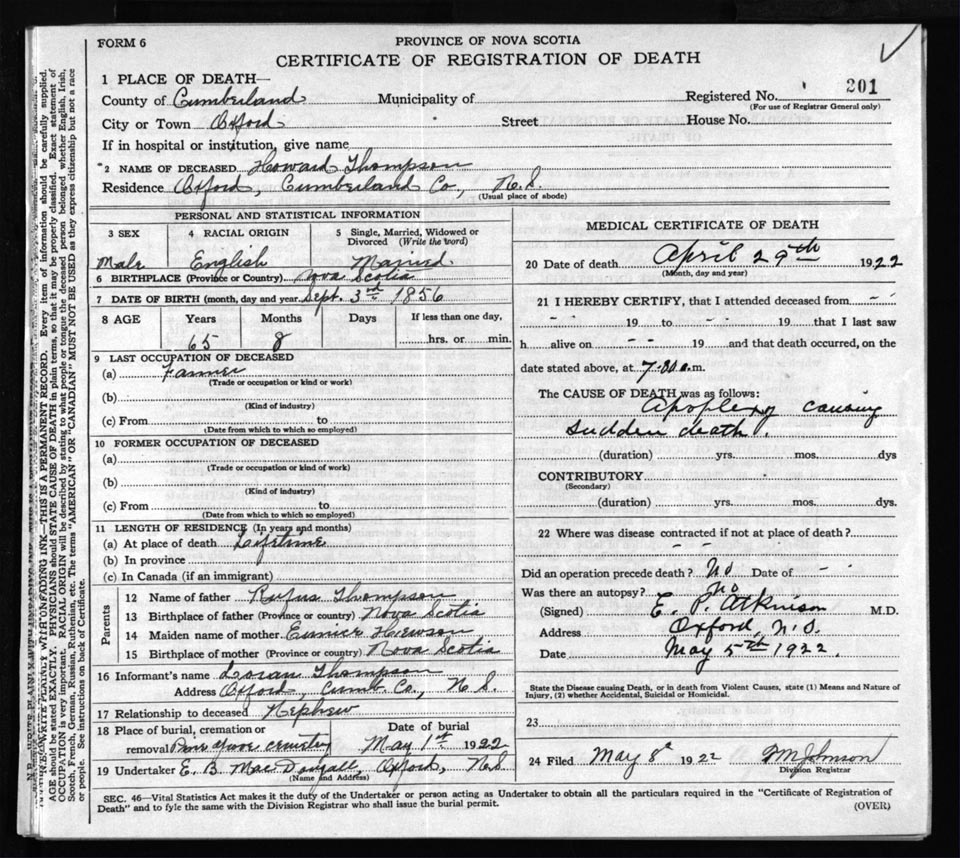 FORM 6
PROVINCE OF NOVA SCOTIA
CERTIFICATE OF REGISTRATION OF DEATH
1 PLACE OF DEATH—
County of Cumberland Municipality of Registered No. 201
(For use of Registrar General only)
City or Town Oxford Street House No.
If in hospital or institution, give name
2 NAME OF DECEASED Howard Thompson
Residence Oxford, Cumberland Co., N.S.
(Usual place of abode)
PERSONAL AND STATISTICAL INFORMATION
3 SEX 4 RACIAL ORIGIN 5 Single, Married, Widowed or Divorced (Write the word)
Male English Married.
6 BIRTHPLACE (Province or Country) Nova Scotia
7 DATE OF BIRTH (month, day and year) Sept. 3rd 1856
8 AGE Years Months Days If less than one day,
65 8 hrs. or min.
9 LAST OCCUPATION OF DECEASED
(a) Farmer
(Trade or occupation or kind or work)
(b)
(Kind of industry)
(c) From to
(Date from which to which so employed)
10 FORMER OCCUPATION OF DECEASED
(a)
(Trade or occupation or kind of work)
(b)
(Kind of industry)
(c) From to
(Date from which to which so employed)
11 LENGTH OF RESIDENCE (In years and months)
(a) At place of death Lifetime
(b) In province
(c) In Canada (if an immigrant)
Parents
12 Name of father Rufus Thompson
13 Birthplace of father (Province or country) Nova Scotia
14 Maiden name of mother Eunice Hewson
15 Birthplace of mother (Province or country) Nova Scotia
16 Informant's name Loran Thompson
Address Oxford, Cumb. Co., N.S.
17 Relationship to deceased Nephew
18 Place of burial, cremation or removal Pine Grove cemetery Date of burial May 1st 1922
19 Undertaker E. B. MacDougall, Oxford, N.S.
(Name and Address)
MEDICAL CERTIFICATE OF DEATH
20 Date of death April 29th 1922
(Month, day and year)
21 I HEREBY CERTIFY, that I attended deceased from - -
- - 19 to - - 19 that I last saw
h alive on - - 19 and that death occurred, on the
date stated above, at 7.30 a.m.
The CAUSE OF DEATH was as follows:
Apoplexy causing
sudden death.
(duration) yrs. mos. dys
CONTRIBUTORY
(Secondary)
(duration) yrs. mos. dys.
22 Where was disease contracted if not at place of death?
- -
Did an operation precede death? No Date of - -
Was there an autopsy? No
(Signed) E. P. Atkinson M.D.
Address Oxford, N.S.
Date May 5th 1922.
State the Disease causing Death, or in death from Violent Causes, state (1) Means and Nature of
Injury, (2) whether Accidental, Suicidal or Homicidal.
23
24 Filed May 8 1922 Johnson
Division Registrar
SEC. 46—Vital Statistics Act makes it the duty of the Undertaker or person acting as Undertaker to obtain all the particulars required in the "Certificate of Registration of
Death" and to fyle the same with the Division Registrar who shall issue the burial permit.
(OVER)
WITH UNFADING INK.—THIS IS A PERMANENT RECORD. Every item of information should be carefully supplied.
AGE should be stated EXACTLY. PHYSICIANS should STATE CAUSE OF DEATH in plain terms, so that it may be properly classified. Exact statement of
OCCUPATION is very important. RACIAL ORIGIN will be described by stating to what people or tongue the deceased person belonged, whether English, Irish,
Scotch, French, German, Russian, Ruthenian, etc. The terms "AMERICAN" OR "CANADIAN" MUST NOT BE USED as they express citizenship but not a race
or people. See instructions on back of Certificate.